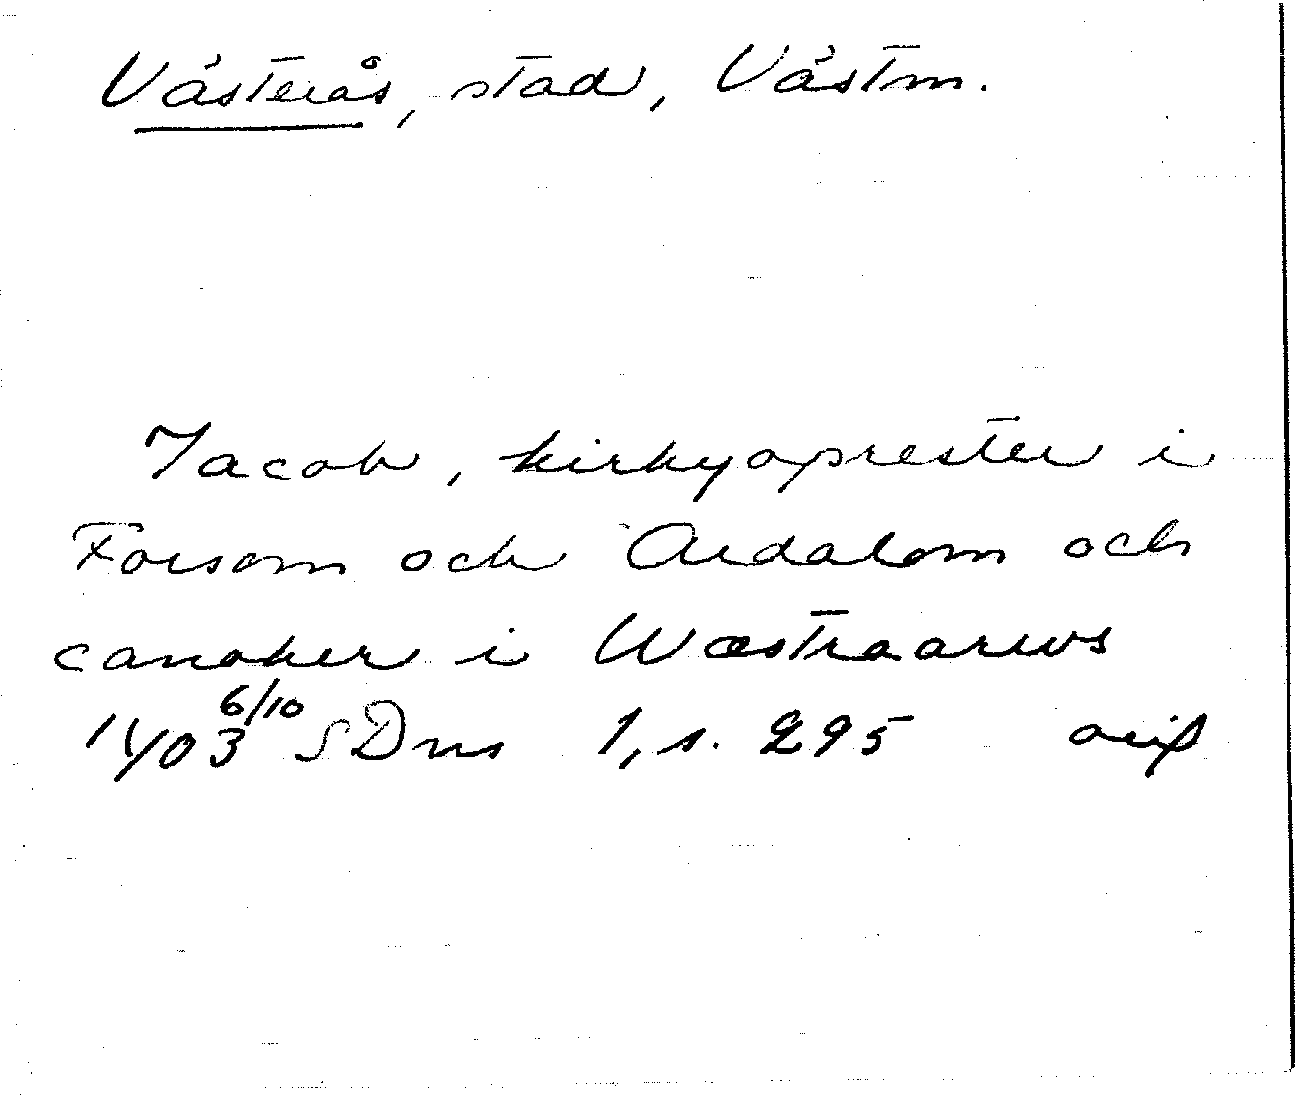 Västerås, stad, Västm.
Jacob, kirkyoprester i
Forsom och Ardalom och
canoker i Wæstraarws
1403 6/10 SDns 1, s. 295 orig